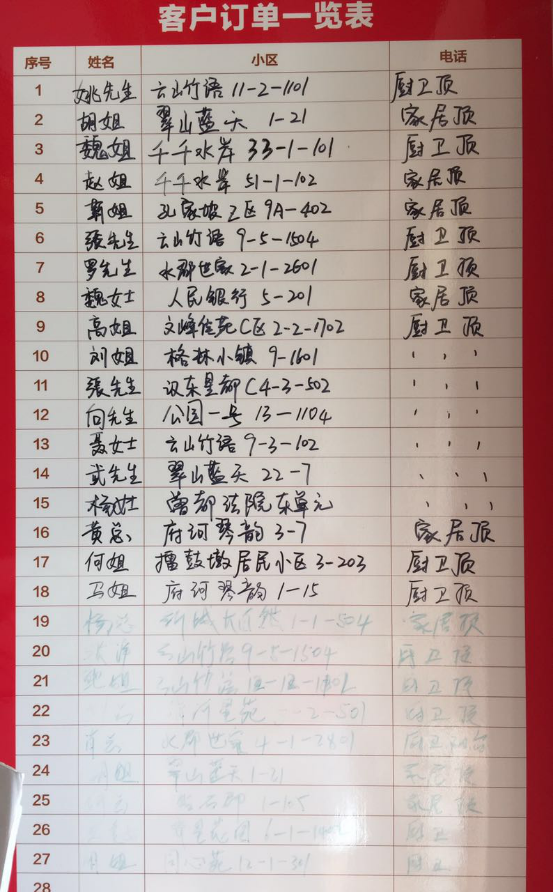 客户订单一览表
序号 姓名 小区 电话
1 姚先生 云山竹语 11-2-1101 厨卫顶
2 胡姐 翠山蓝天 1-21 家居顶
3 魏姐 千千水岸 33-1-101 厨卫顶
4 赵姐 千千水岸 51-1-102 家居顶
5 姐 孔家坡工区 9A-402 家居顶
6 張先生 云山竹语 9-5-1504 厨卫顶
7 罗先生 水郡世家 2-1-2601 厨卫顶
8 魏女士 人民银行 5-201 家居顶
9 高姐 文峰佳苑C区 2-2-1702 厨卫顶
10 刘姐 格林小镇 9-1601 、 、 、
11 張先生 汉东皇都 C4-3-502 、 、 、
12 向先生 公园一号 13-1104 、 、 、
13 聂女士 云山竹语 9-3-102 、 、 、
14 武先生 翠山蓝天 22-7 、 、 、
15 杨女士 曾都法院东单元 、 、 、
16 黄总 府河琴韵 3-7 家居顶
17 何姐 擂鼓墩居民小区 3-203 厨卫顶
18 马姐 府河琴韵 1-15 厨卫顶
19 1-1-504 家居顶
20 云山竹语 9-5-1504 厨卫顶
21 姐 厨卫顶
22 2-501 厨卫顶
23 水郡世家 4-1-2401 厨卫
24 姐 翠山蓝天 1-21 家居顶
25 1-105 家居顶
26 厨卫
27 姐 12-1-301 厨卫
28